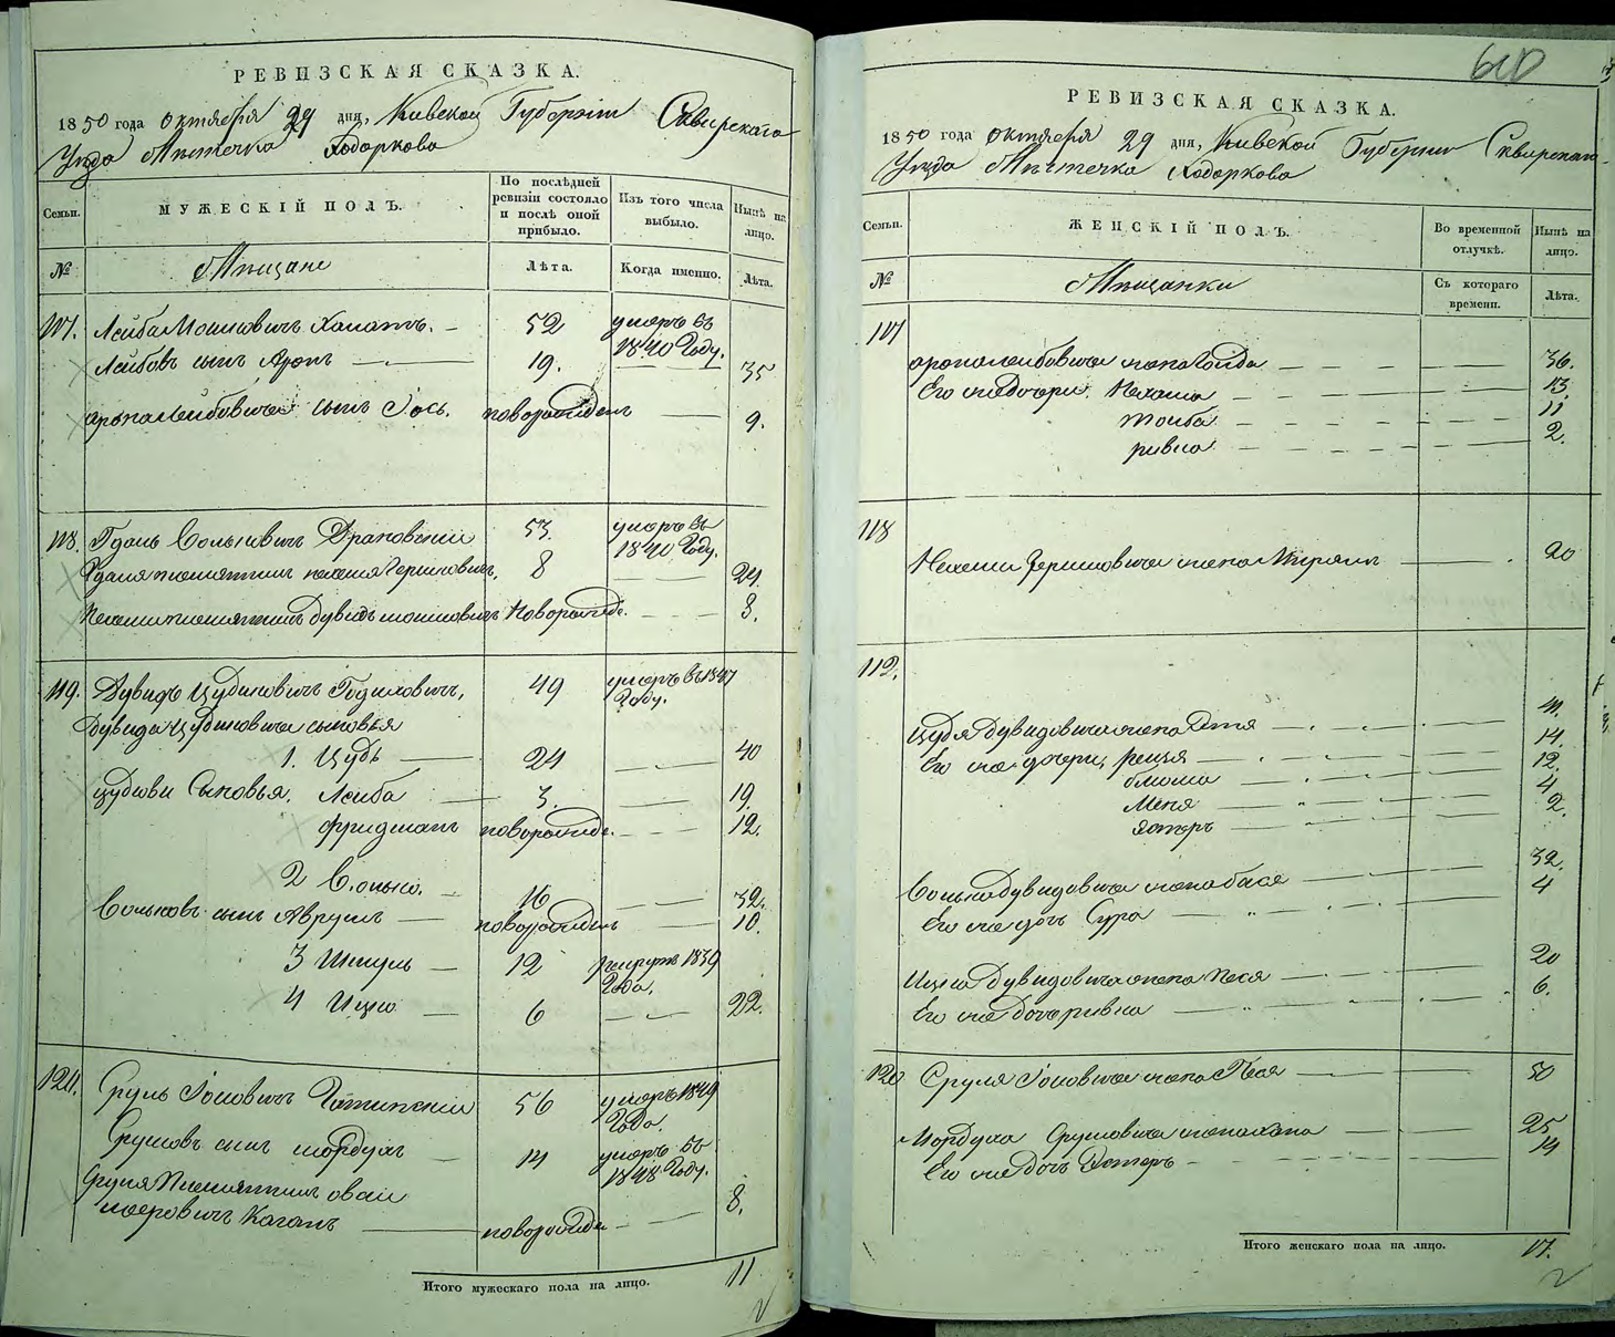 РЕВИЗСКАЯ СКАЗКА.
1850 года октября 29 дня, Киевской Губернии Сквирскаго
Уезда Местечка Ходоркова
Семьи. МУЖЕСКІЙ ПОЛЪ. По послѣдней ревизіи состояло и послѣ оной прибыло. Изъ того числа выбыло. Нынѣ на лицо.
№ Мещане Лѣта. Когда именно. Лѣта.
117. Лейба Мошковичъ 52 умеръ въ 1840 Году.
Лейбовъ сынъ Аронъ 19. 35
Арона Лейбовича сынъ Іось. новорожденъ 9.
118. Вольковичъ 53. умеръ въ 1840 Году.
племянникъ Гершковичъ, 8 24.
племянникъ Дувидъ Мошковичъ Новорожде. 8.
119. Дувидъ Цудиковичъ 49 умеръ въ 1847 Году.
Дувида Цудиковича сыновья
1. Цудь 24 40
Цудови Сыновья. Лейба 3. 19.
Фридманъ новорожде. 12.
2 Волько. 16 32.
Вольковъ сынъ Аврумъ новорожденъ 10.
3 Шмуль 12 рекрутъ 1839 Года.
4 Ицко 6 22.
120. Сруль Іосиовичъ 56 умеръ 1849 Года.
Срулювъ сынъ Мордухъ 14 умеръ въ 1848 Году.
Сруля Племянникъ
Мееровичъ Каганъ новорожде 8.
Итого мужескаго пола на лицо. 11
610
РЕВИЗСКАЯ СКАЗКА.
1850 года октября 29 дня, Киевской Губернии Сквирскаго
Уезда Местечка Ходоркова
Семьи. ЖЕНСКІЙ ПОЛЪ. Во временной отлучкѣ. Нынѣ на лицо.
№ Мещанки Съ котораго времени. Лѣта.
117
Арона Лейбовича жена 36.
Его же дочери. Нехама 13.
Тойба 11
Ривка 2.
118
Гершковича жена Мирямъ 20
119.
Цудя Дувидовича жена Этя 41.
Его же дочери, Рейзя 14.
Блюма 12.
Меня 4
Эстеръ 2.
Волька Дувидовича жена Бася 32.
Его же дочь Сура 4
Ицка Дувидовича жена Песя 20
Его же дочь Ривка 6.
120 Сруля Іосиовича жена Песя 50
Мордуха Срулиовича жена Хана 25
Его же дочь Эстеръ 14
Итого женскаго пола на лицо. 17.